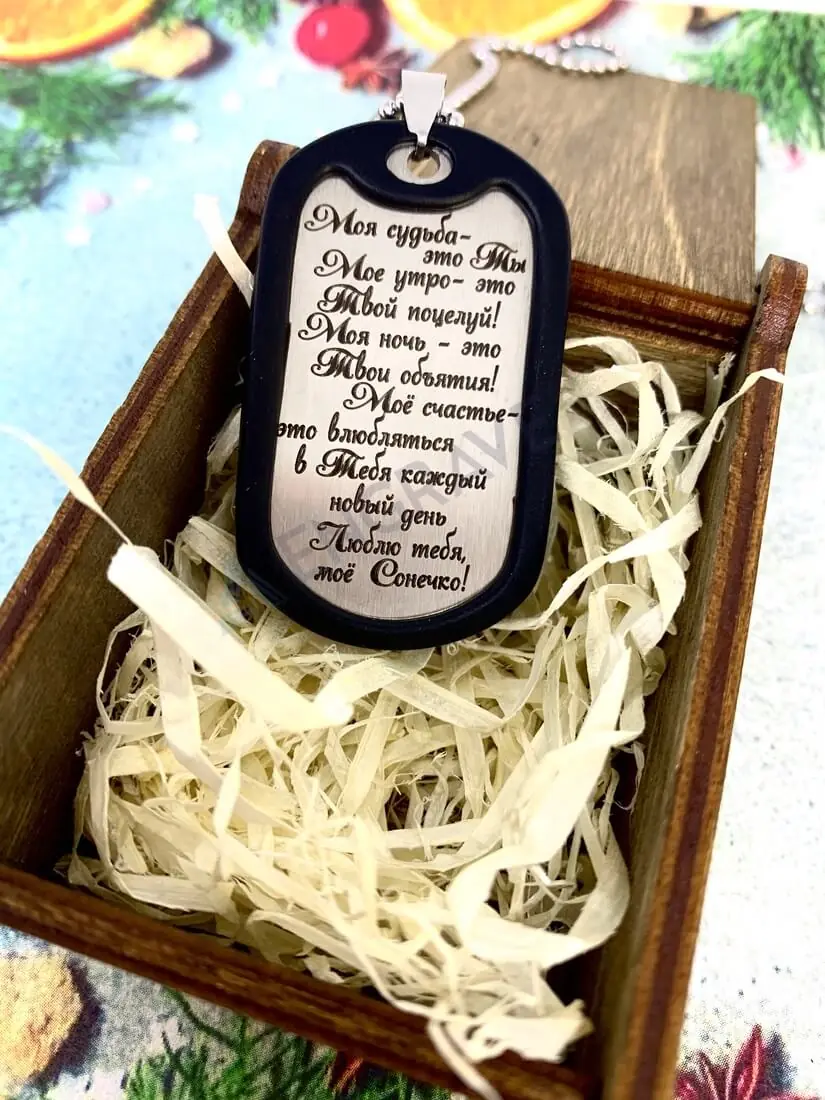 Моя судьба-
это Ты
Мое утро- это
Твой поцелуй!
Моя ночь - это
Твои объятия!
Моё счастье-
это влюбляться
в Тебя каждый
новый день
Люблю тебя,
моё Сонечко!